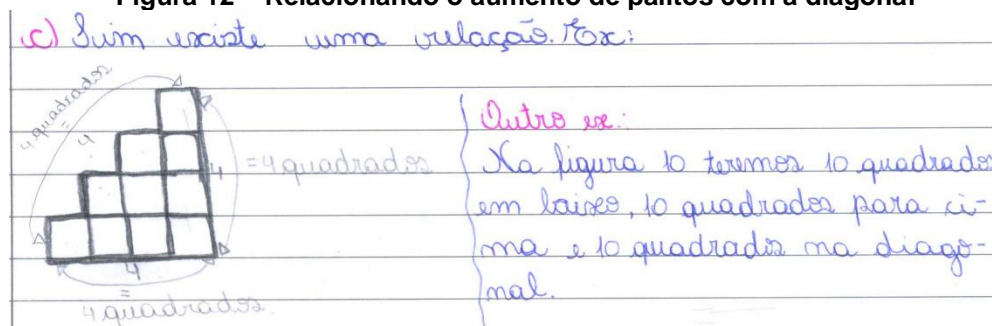 Figura 12 – Relacionando o aumento de palitos com a diagonal
c) Sim existe uma relação. Ex:
4 quadrados
=
4
4
= 4 quadrados
4
=
4 quadrados.
Outro ex.:
Na figura 10 teremos 10 quadrados
em baixo, 10 quadrados para ci-
ma e 10 quadrados na diago-
nal.